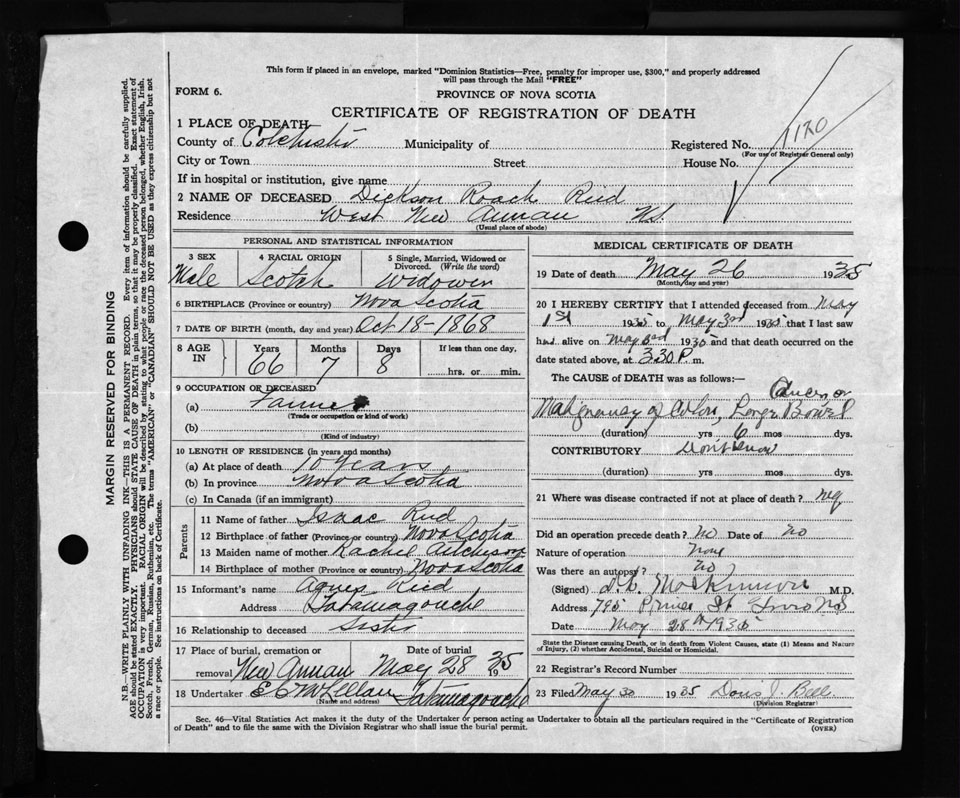 This form if placed in an envelope, marked "Dominion Statistics—Free, penalty for improper use, $300," and properly addressed
will pass through the Mail "FREE"
FORM 6.
PROVINCE OF NOVA SCOTIA
CERTIFICATE OF REGISTRATION OF DEATH
1 PLACE OF DEATH
County of Colchester Municipality of Registered No. 1120
(For use of Registrar General only)
City or Town Street House No.
If in hospital or institution, give name
2 NAME OF DECEASED Dickson Roach Reid
Residence West New Annan N.S.
(Usual place of abode)
PERSONAL AND STATISTICAL INFORMATION
3 SEX 4 RACIAL ORIGIN 5 Single, Married, Widowed or
Divorced. (Write the word)
Male Scotch Widower
6 BIRTHPLACE (Province or country) Nova Scotia
7 DATE OF BIRTH (month, day and year) Oct 18-1868
8 AGE IN Years Months Days If less than one day,
66 7 8 hrs. or min.
9 OCCUPATION OF DECEASED
(a) Farmer
(Trade or occupation or kind of work)
(b)
(Kind of industry)
10 LENGTH OF RESIDENCE (in years and months)
(a) At place of death 10 years
(b) In province Nova Scotia
(c) In Canada (if an immigrant)
Parents
11 Name of father Isaac Reid
12 Birthplace of father (Province or country) Nova Scotia
13 Maiden name of mother Rachel Aitchison
14 Birthplace of mother (Province or country) Nova Scotia
15 Informant's name Agnes Reid
Address Tatamagouche
16 Relationship to deceased Sister
17 Place of burial, cremation or Date of burial
removal New Annan May 28 1935
18 Undertaker E C McLellan Tatamagouche
(Name and address)
MEDICAL CERTIFICATE OF DEATH
19 Date of death May 26 1935
(Month, day and year)
20 I HEREBY CERTIFY that I attended deceased from May
1st 1935 to May 3rd 1935 that I last saw
h alive on May 3rd 1935 and that death occurred on the
date stated above, at 3.30 P. m.
The CAUSE of DEATH was as follows:— Cancer or
Malignancy of Colon, Large Bowel
(duration) yrs 6 mos dys.
CONTRIBUTORY Don't know
(duration) yrs. mos. dys.
21 Where was disease contracted if not at place of death? neg
Did an operation precede death? no Date of no
Nature of operation None
Was there an autopsy? no
(Signed) McKinnon M.D.
Address 795 Prince St Truro NS
Date May 28th 1935
State the Disease causing Death, or in death from Violent Causes, state (1) Means and Nature of
Injury, (2) whether Accidental, Suicidal or Homicidal.
22 Registrar's Record Number
23 Filed May 30 1935 Doris J. Bell
(Division Registrar)
Sec. 46—Vital Statistics Act makes it the duty of the Undertaker or person acting as Undertaker to obtain all the particulars required in the "Certificate of Registration
of Death" and to file the same with the Division Registrar who shall issue the burial permit.
(OVER)
MARGIN RESERVED FOR BINDING
N.B.—WRITE PLAINLY WITH UNFADING INK—THIS IS A PERMANENT RECORD. Every item of information should be carefully supplied.
AGE should be stated EXACTLY. PHYSICIANS should STATE CAUSE OF DEATH in plain terms, so that it may be properly classified. Exact statement of
OCCUPATION is very important. RACIAL ORIGIN will be described by stating to what people or race the deceased person belonged, whether English, Irish,
Scotch, French, German, Russian, Ruthenian, etc. The terms "AMERICAN" or "CANADIAN" SHOULD NOT BE USED as they express citizenship but not
a race or people. See instructions on back of Certificate.